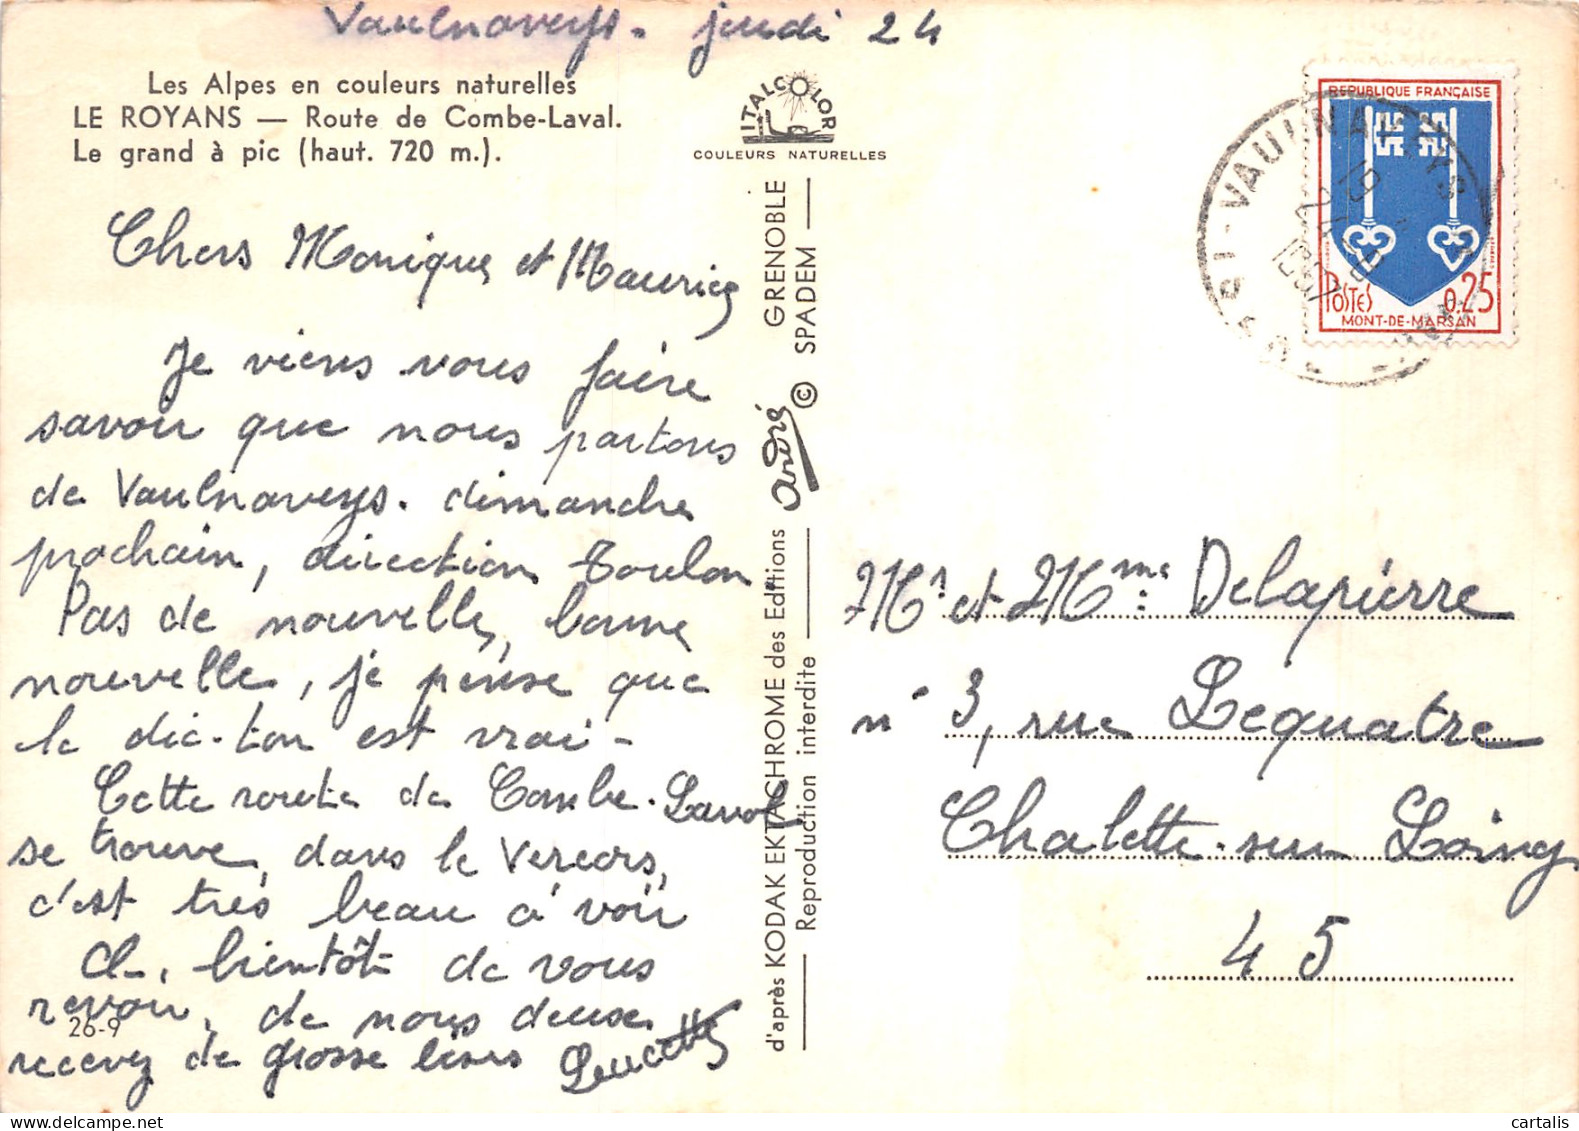 Vaulnaveys. jeudi 24
Les Alpes en couleurs naturelles
LE ROYANS — Route de Combe-Laval.
Le grand à pic (haut. 720 m.).
ITALCOLOR
COULEURS NATURELLES
Chers Monique et Maurice
Je viens vous faire
savoir que nous partons
de Vaulnaveys. dimanche
prochain, direction Toulon.
Pas de nouvelle, bonne
nouvelle, je pense que
le dic-ton est vrai -
Cette route de Combe-Laval
se trouve, dans le Vercors,
c'est très beau à voir
A, bientôt de vous
revoir, de nous deux
recevez de grosse bises Lucette
26-9
d'après KODAK EKTACHROME des Editions André © SPADEM — GRENOBLE
Reproduction interdite
REPUBLIQUE FRANÇAISE
POSTES 0,25
MONT-DE-MARSAN
VAULNAVEYS
19
24 -8
1967
Mr et Mme Delapierre
n° 3, rue Lequatre
Chalette-sur Loing
45
cartalis